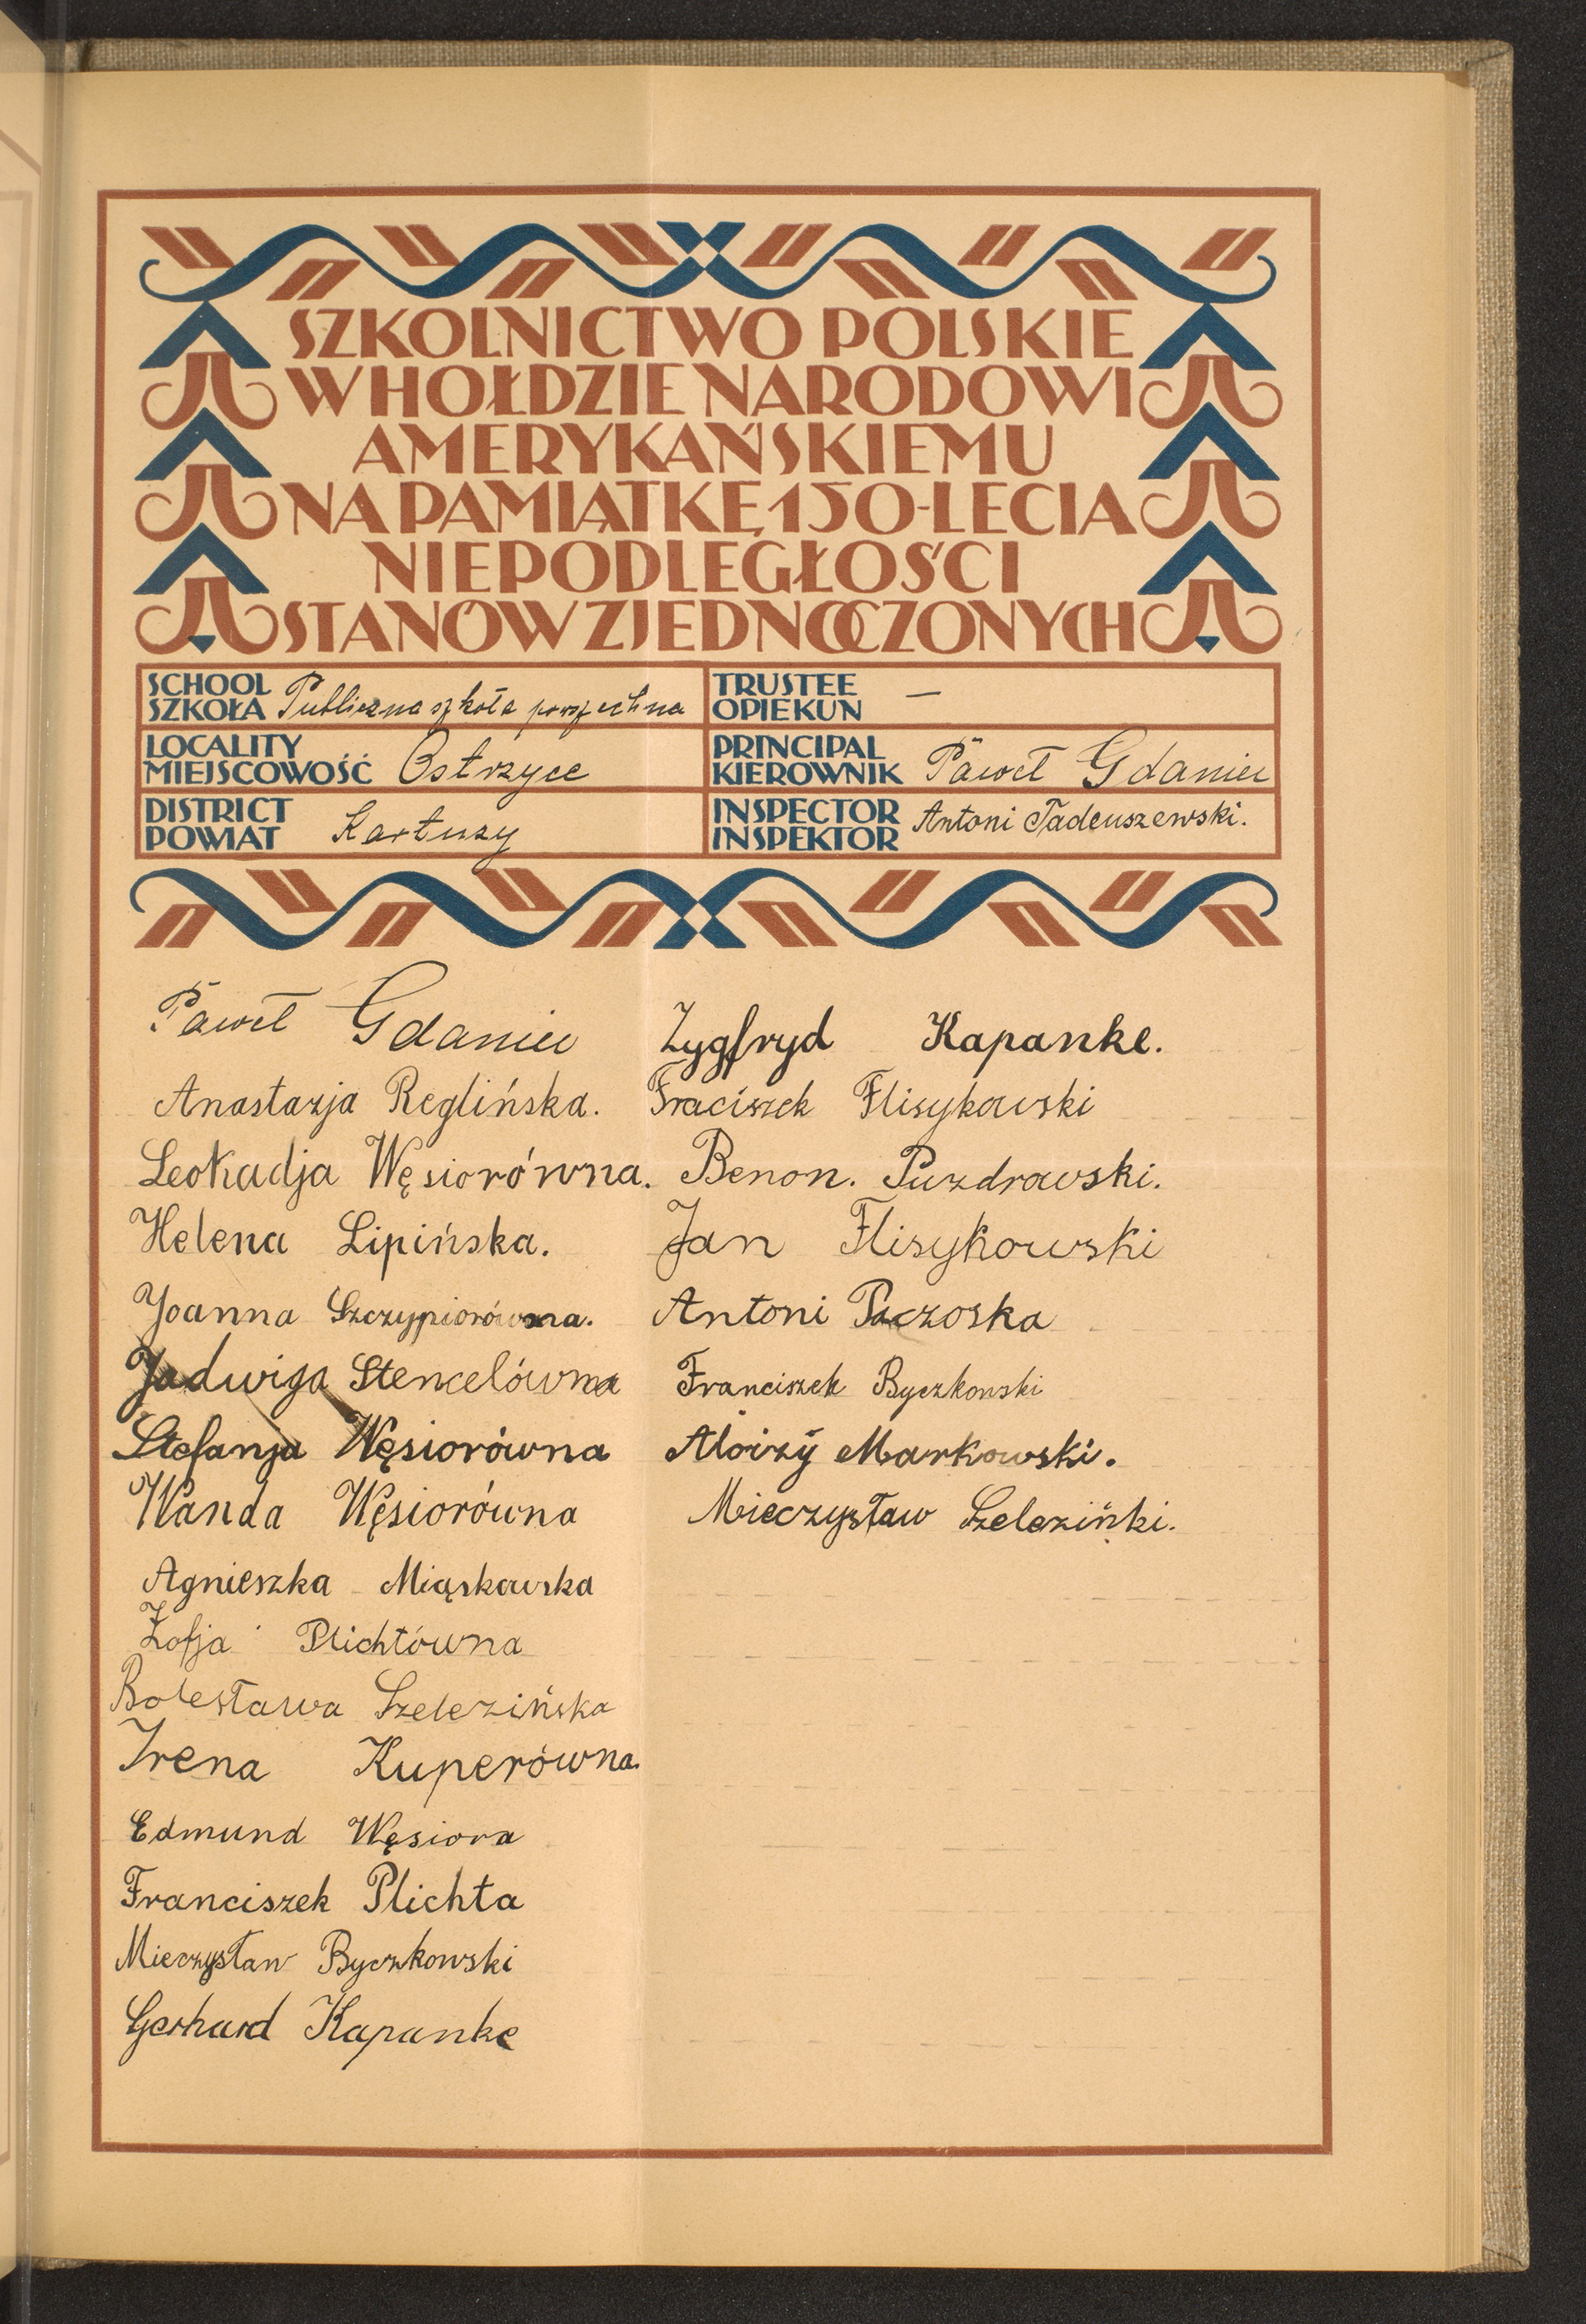 SZKOLNICTWO POLSKIE
W HOŁDZIE NARODOWI
AMERYKAŃSKIEMU
NA PAMIĄTKĘ 150-LECIA
NIEPODLEGŁOŚCI
STANÓW ZJEDNOCZONYCH
SCHOOL
SZKOŁA Publiczna szkoła powszechna
TRUSTEE
OPIEKUN —
LOCALITY
MIEJSCOWOŚĆ Ostrzyce
PRINCIPAL
KIEROWNIK Paweł Gdaniec
DISTRICT
POWIAT Kartuzy
INSPECTOR
INSPEKTOR Antoni Tadeuszewski.
Paweł Gdaniec
Anastazja Reglińska.
Leokadja Węsiorówna.
Helena Lipińska.
Joanna Szczypiorówna.
Jadwiga Stencelówna
Stefanja Węsiorówna
Wanda Węsiorówna
Agnieszka Miąskowska
Zofja Plichtówna
Bolesława Szelezińska
Irena Kuperówna.
Edmund Węsiora
Franciszek Plichta
Mieczysław Byczkowski
Gerhard Kapanke
Zygfryd Kapanke.
Fraciszek Flisykowski
Benon. Puzdrowski.
Jan Flisykowski
Antoni Paczoska
Franciszek Byczkowski
Aloizy Markowski.
Mieczysław Szeleziński.